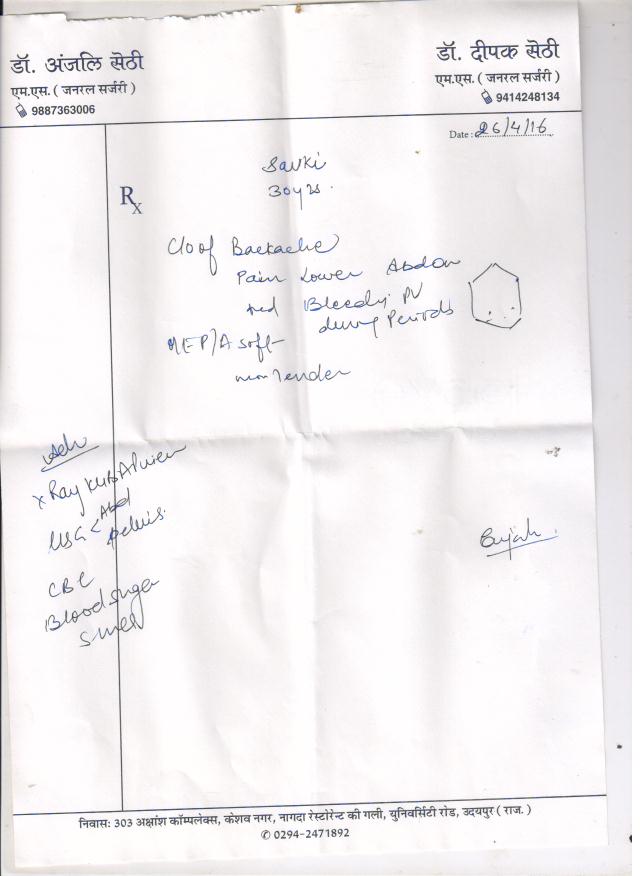 डॉ. अंजलि सेठी
एम.एस. ( जनरल सर्जरी )
9887363006
डॉ. दीपक सेठी
एम.एस. ( जनरल सर्जरी )
9414248134
Date : 26/4/16
Rx
30 yrs.
C/o of Backache
Pain Lower Abdom
Bleeding PV
during Periods
P/A soft
non Tender
Adv
X Ray KUB AP view
USG < Abd
pelvis.
CBC
Blood Sugar
निवासः 303 अक्षांश कॉम्पलेक्स, केशव नगर, नागदा रेस्टोरेन्ट की गली, युनिवर्सिटी रोड, उदयपुर ( राज. )
✆ 0294-2471892